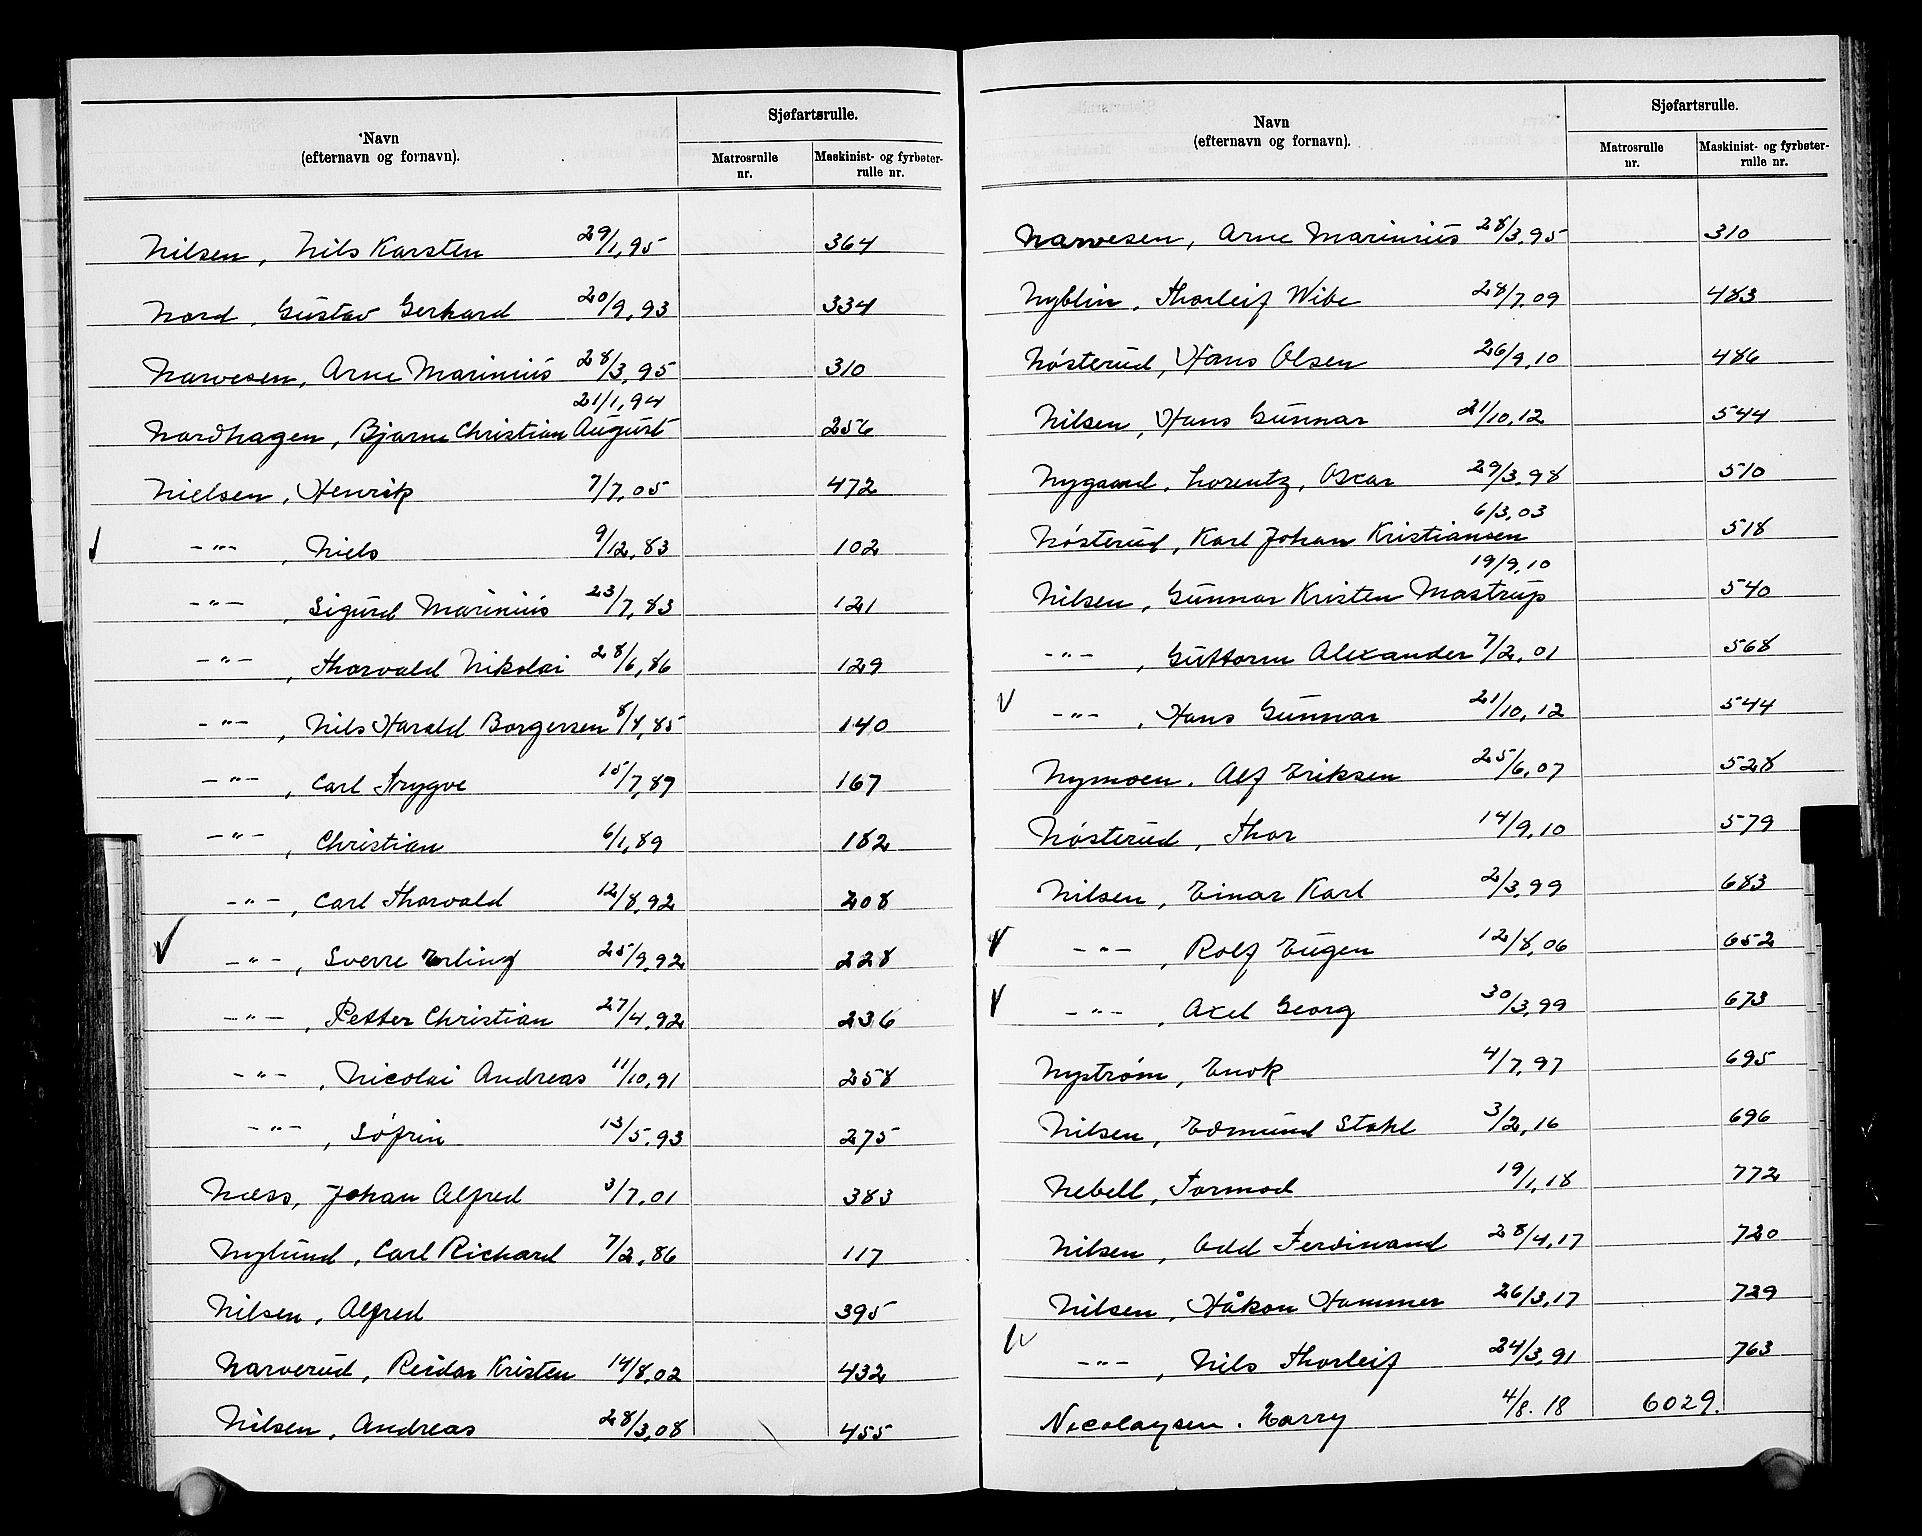 Navn
(efternavn og fornavn).
Sjøfartsrulle.
Matrosrulle nr.
Maskinist- og fyrbøter-rulle nr.
Nilsen, Nils Karsten 29/1,95 364
Nord, Gustav Gerhard 20/9,93 334
Narvesen, Arne Marinius 28/3,95 310
21/1,94
Nordhagen, Bjarne Christian August 256
Nielsen, Henrik 7/7,05 472
-"-, Niels 9/12,83 102
-"-, Sigurd Marinius 23/7,83 121
-"-, Thorvald Nikolai 28/6,86 129
-"-, Nils Harald Borgersen 8/4,85 140
-"-, Carl Trygve 15/7,89 167
-"-, Christian 6/1,89 182
-"-, Carl Thorvald 12/8,92 208
-"-, Sverre Erling 25/9,92 228
-"-, Petter Christian 27/4,92 236
-"-, Nicolai Andreas 11/10,91 258
-"-, Søfrin 13/5,93 275
Næss, Johan Alfred 3/7,01 383
Nylund, Carl Richard 7/2,86 117
Nilsen, Alfred 395
Narverud, Reidar Kristen 14/8,02 432
Nilsen, Andreas 28/3,08 455
Navn
(efternavn og fornavn).
Sjøfartsrulle.
Matrosrulle nr.
Maskinist- og fyrbøter-rulle nr.
Narvesen, Arne Marinius 28/3,95 310
Nyblin, Thorleif Wibe 28/7,09 483
Nøsterud, Hans Olsen 26/9,10 486
Nilsen, Hans Gunnar 21/10,12 544
Nygaard, Lorentz, Oscar 29/3,98 510
6/3,03
Nøsterud, Karl Johan Kristiansen 518
19/9,10
Nilsen, Gunnar Kristen Mastrup 540
-"-, Guttorm Alexander 7/2,01 568
-"-, Hans Gunnar 21/10,12 544
Nymoen, Alf Eriksen 25/6,07 528
Nøsterud, Thor 14/9,10 579
Nilsen, Einar Karl 2/3,99 683
-"-, Rolf Eugen 12/8,06 652
-"-, Axel Georg 30/3,99 673
Nystrøm, Enok 4/7,97 695
Nilsen, Edmund Stahl 3/2,16 696
Nebell, Tormod 19/1,18 772
Nilsen, Odd Ferdinand 28/4,17 720
Nilsen, Håkon Hammer 26/3,17 729
-"-, Nils Thorleif 24/3,91 763
Nicolaysen, Harry 4/8.18 6029.